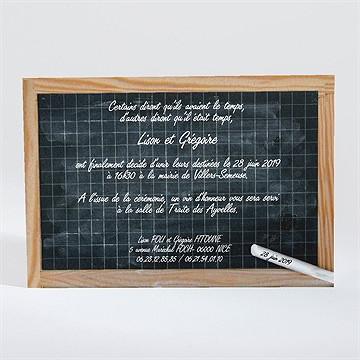 Certains diront qu'ils avaient le temps,
d'autres diront qu'il était temps,
Lison et Grégoire
ont finalement décidé d'unir leurs destinées le 28 juin 2019
à 16h30 à la mairie de Villers-Semeuse.
A l'issue de la cérémonie, un vin d'honneur vous sera servi
à la salle de Traite des Ayvelles.
Lison POLI et Grégoire FITOUNE
5 avenue Maréchal FOCH- 06000 NICE
06.28.12.85.35 / 06.21.54.01.10
28 juin 2019